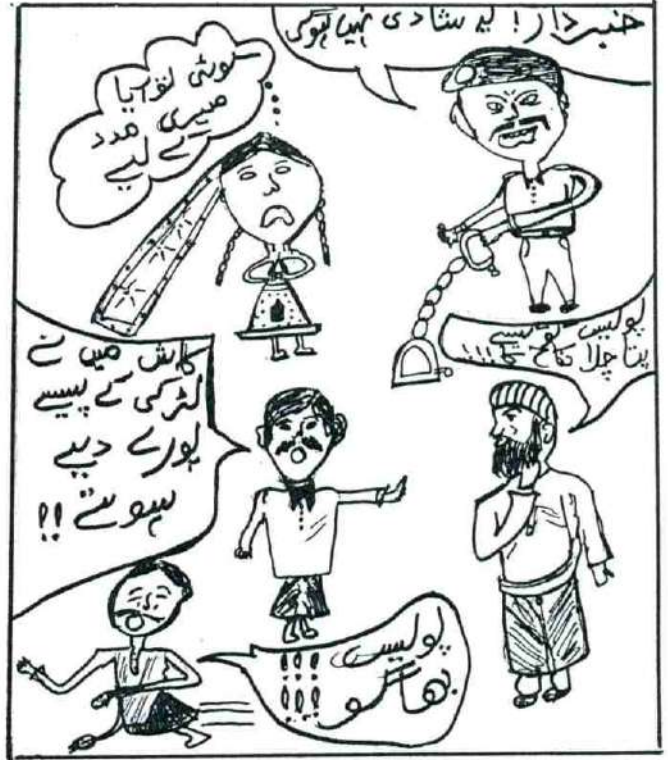 خبردار! یہ شادی نہیں ہوگی
کوئی تو آیا
میری مدد
کے لیے
پولیس کو کیسے
پتا چلا نکاح کا!!!
کاش میں نے
لڑکی کے پیسے
پورے دیے
ہوتے !!
پولیس !!!
بھاگو !!!